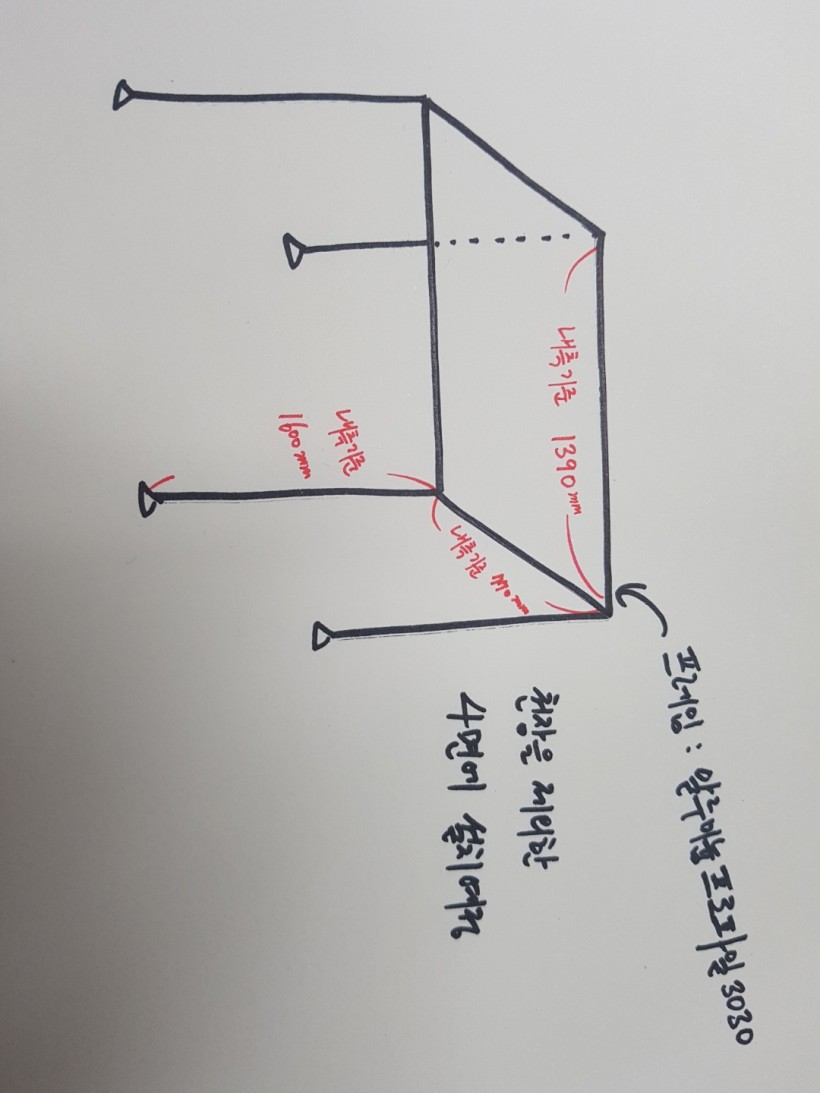 프레임 : 알루미늄 프로파일 3030
내측기준 1390mm
내측기준
내측기준
1600mm
천장을 제외한
4면에 설치예정